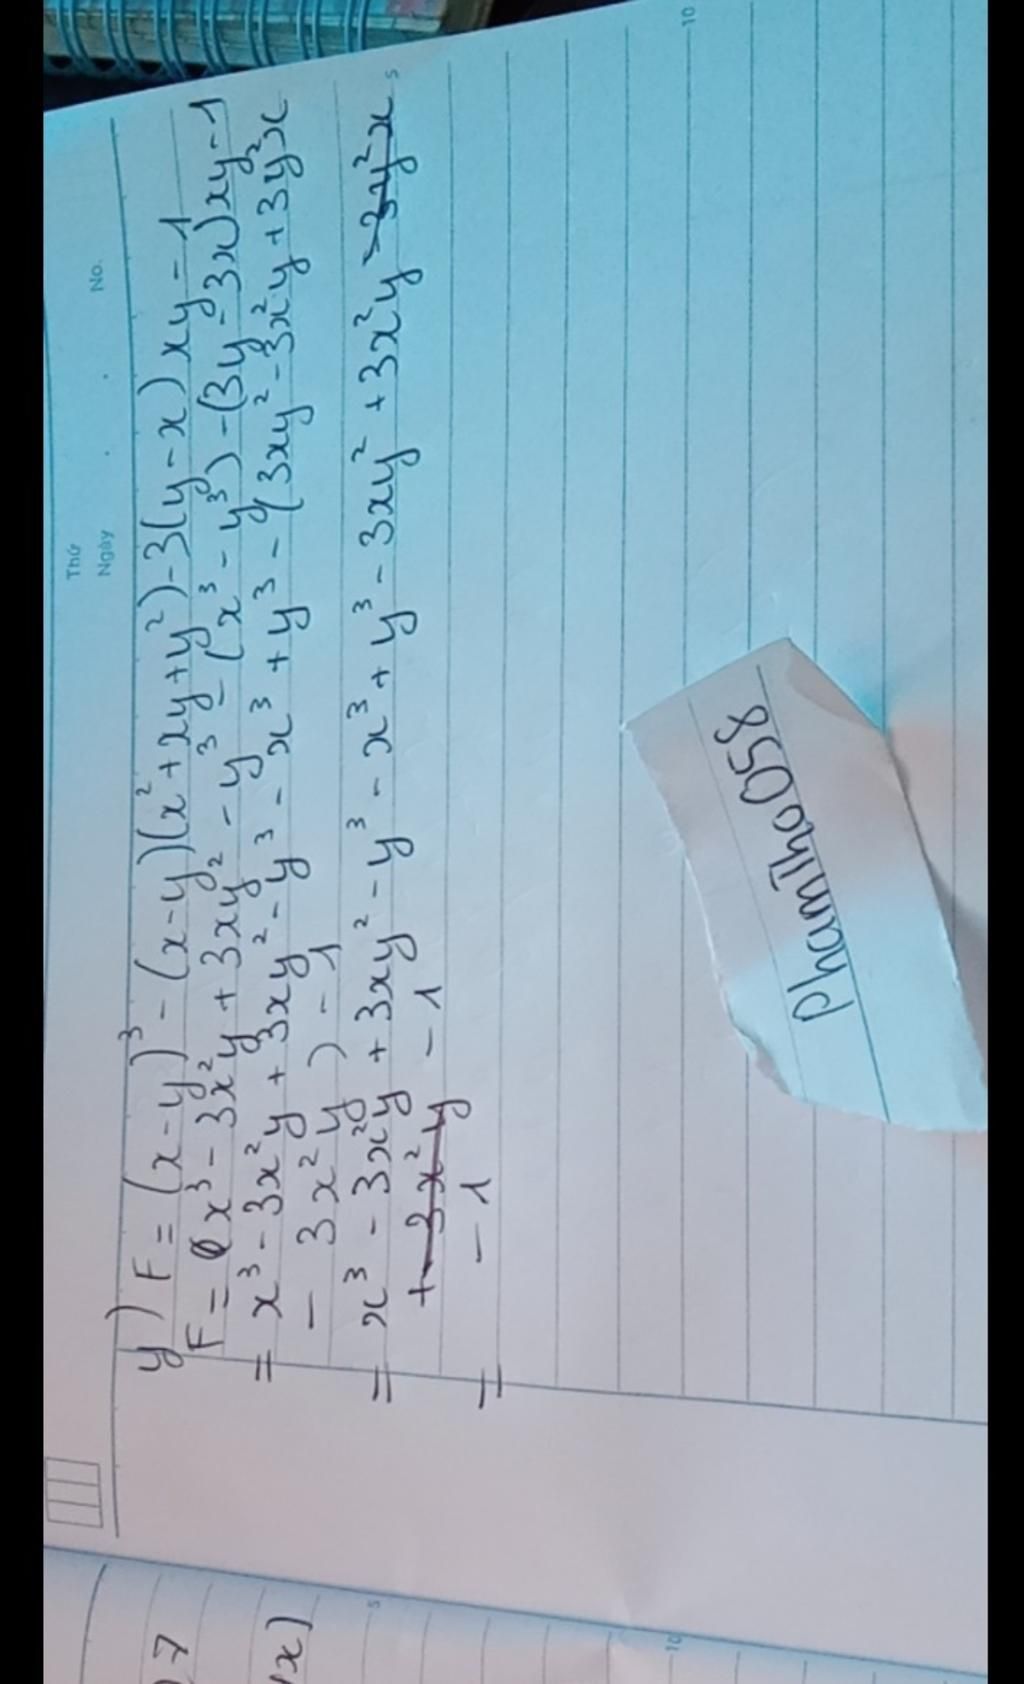 Thứ
Ngày
No.
y) F = (x - y)³ - (x - y)(x² + xy + y²) - 3(y - x) xy - 1
F = x³ - 3x²y + 3xy² - y³ - (x³ - y³) - (3y - 3x) xy - 1
= x³ - 3x²y + 3xy² - y³ - x³ + y³ - (3xy² - 3x²y + 3y²x
- 3x²y) - 1
= x³ - 3x²y + 3xy² - y³ - x³ + y³ - 3xy² + 3x²y - 3y²x
+ 3x²y - 1
= - 1
5
10
PhamThao058
7
x)
5
10